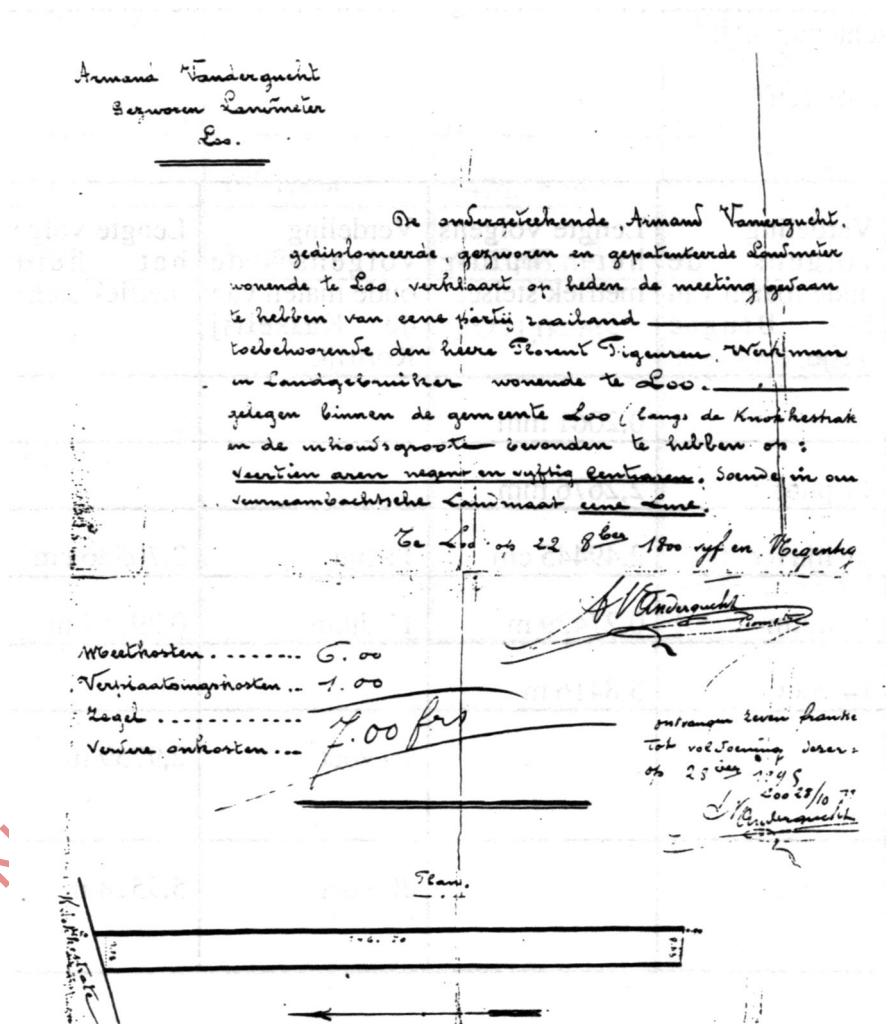 Armand Vandergucht
Gezworen Landmeter
Loo.
De ondergeteekende Armand Vandergucht,
gediplomeerde, gezworen en gepatenteerde Landmeter
wonende te Loo, verklaart op heden de meeting gedaan
te hebben van eene partij zaailand
toebehoorende den heere Florent Werkman
en Landgebruiker wonende te Loo.
gelegen binnen de gemeente Loo, langs de Knokkestrate
en de inhoudsgroote bevonden te hebben op:
veertien aren negen en vyftig Centiaren. doende in oude
veurneambachtsche Landmaat eene Line.
Te Loo op 22 8ber 1800 vyf en Negentig
A Vandergucht
Meetkosten........ 6.00
Verplaatsingskosten... 1.00
Zegel ..............
Verdere onkosten...
7.00 frs
ontvangen zeven franks
tot voldoening dezer
op 28 8ber 1895
Loo 28/10
A Vandergucht
Plan.
Knokkestrate